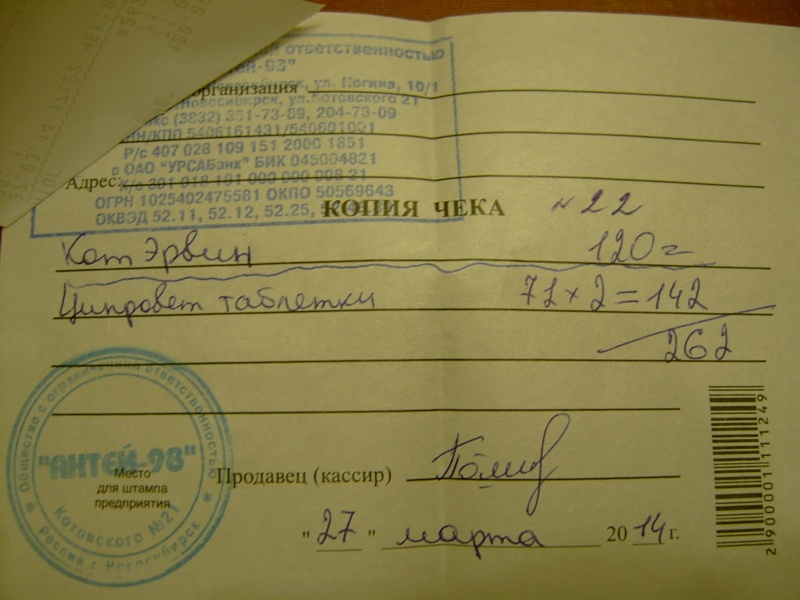 ответственностью
организация
ул. Ногина, 10/1
ул. Котовского 21
(3832) 351-73-09, 204-73-09
5406161431/540601001
Р/с 407 028 109 151 2000 1851
в ОАО "УРСАБанк" БИК 045004821
Адрес:
К/с 301 018 101 000 000 008 21
ОГРН 1025402475581 ОКПО 50569643
ОКВЭД 52.11, 52.12, 52.25,
КОПИЯ ЧЕКА №22
Кот Эрвин 120=
Ципровет таблетки 71×2=142
262
Общество с ограниченной ответственностью
"АНТЕЙ-98"
Котовского №21
Россия г Новосибирск
Место
для штампа
предприятия
Продавец (кассир)
"27" марта 2014 г.
2900001111249